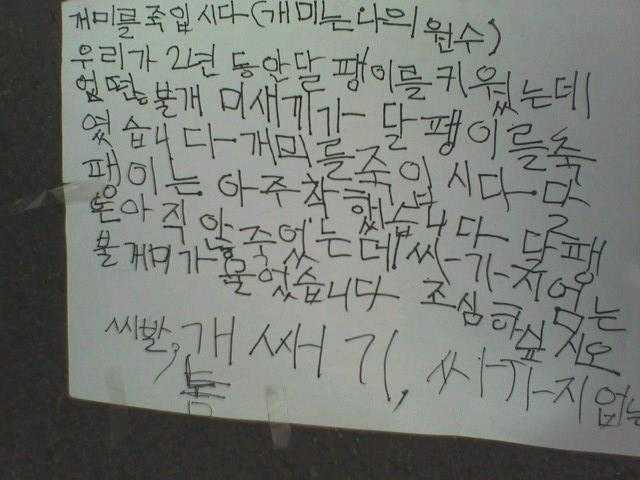 개미를 죽입시다 (개미는 나의 원수)
우리가 2년 동안 달팽이를 키웠는데
업떤 불개미새끼가 달팽이를 죽
였습니다 개미를 죽입시다. 달
팽이는 아주 착했습니다 달팽
돈아직 안죽었는데 싸가지 없는
불개미가 물었습니다 조심하싶시오
씨발, 개쌔기, 싸가지 없는
놈